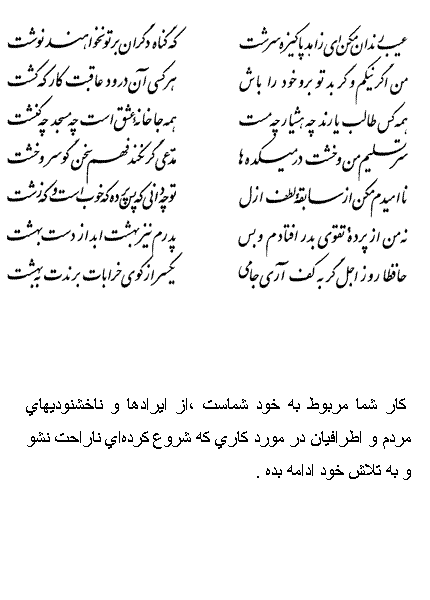 عیب رندان مکن ای زاهد پاکیزه سرشت که گناه دگران بر تو نخواهند نوشت
من اگر نیکم و گر بد تو برو خود را باش هر کسی آن درود عاقبت کار که کشت
همه کس طالب یارند چه هشیار چه مست همه جا خانه عشق است چه مسجد چه کنشت
سر تسلیم من و خشت در میکده‌ها مدعی گر نکند فهم سخن گو سر و خشت
ناامیدم مکن از سابقه لطف ازل تو چه دانی که پس پرده که خوب است و که زشت
نه من از پرده تقوی بدر افتادم و بس پدرم نیز بهشت ابد از دست بهشت
حافظا روز اجل گر به کف آری جامی یکسر از کوی خرابات برندت به بهشت
كار شما مربوط به خود شماست ،از ايرادها و ناخشنوديهاي
مردم و اطرافيان در مورد كاري كه شروع كرده‌اي ناراحت نشو
و به تلاش خود ادامه بده .